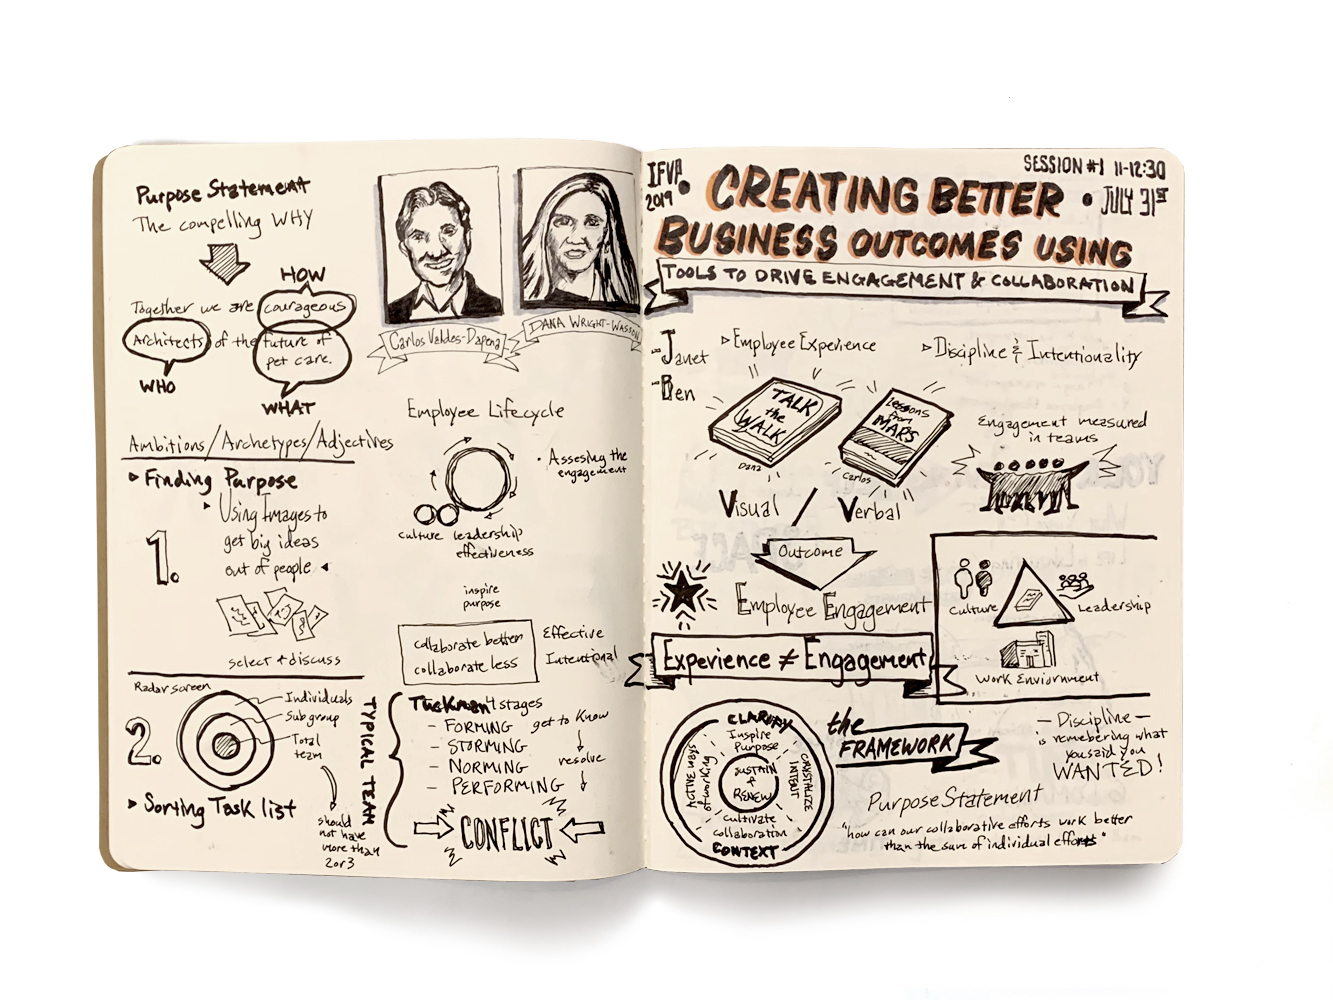 Purpose Statement
The compelling WHY
HOW
Together we are courageous
Architects of the future of
pet care.
WHO
WHAT
Ambitions/Archetypes/Adjectives
Finding Purpose
1.
Using Images to
get big ideas
out of people
select + discuss
Radar screen
Individuals
Sub group
Total
team
2.
Sorting Task list
should
not have
more than
2 or 3
TYPICAL TEAM
Carlos Valdes-Dapena
DANA WRIGHT-WASSON
Employee Lifecycle
• Assesing the
engagement
culture leadership
effectiveness
inspire
purpose
collaborate better
collaborate less
Effective
Intentional
Tuckman stages
- FORMING
- STORMING
- NORMING
- PERFORMING
get to know
resolve
CONFLICT
IFVP
2019
SESSION #1 11-12:30
• JULY 31ST
CREATING BETTER
BUSINESS OUTCOMES USING
TOOLS TO DRIVE ENGAGEMENT & COLLABORATION
- Janet
- Ben
Employee Experience
Discipline & Intentionality
TALK
the
WALK
Dana
Lessons
from
MARS
Carlos
Engagement measured
in teams
Visual / Verbal
Outcome
Employee Engagement
Experience ≠ Engagement
Culture
Leadership
Work Enviornment
CLARIFY
Inspire
Purpose
ACTIVE ways
of working
CRYSTALIZE
INTENT
SUSTAIN
+
RENEW
Cultivate
collaboration
CONTEXT
the
FRAMEWORK
— Discipline —
is remebering what
you said you
WANTED!
Purpose Statement
"how can our collaborative efforts work better
than the sum of individual efforts"